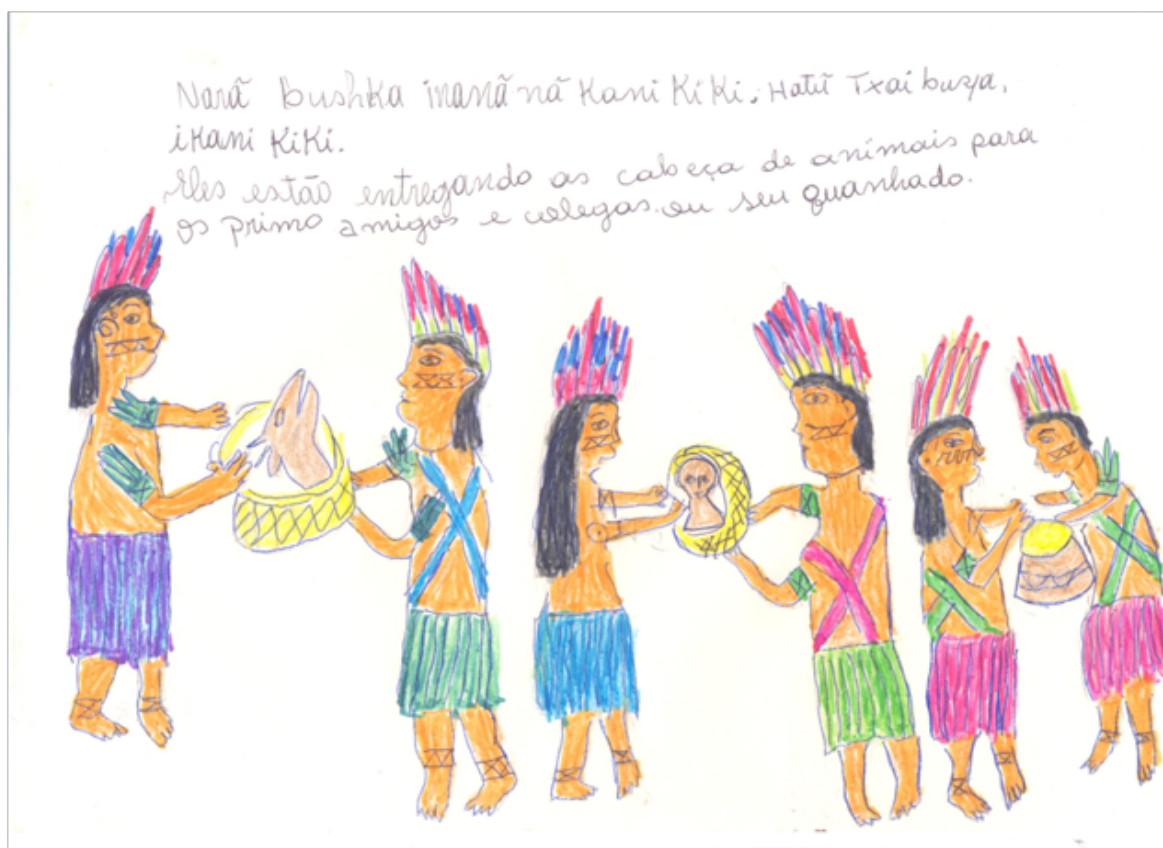 Narã bushka inanãnã Kani KiKi. Hatũ Txai buya,
iKani KiKi.
Eles estão entregando as cabeça de animais para
os primo amigos e colegas. ou seu quanhado.